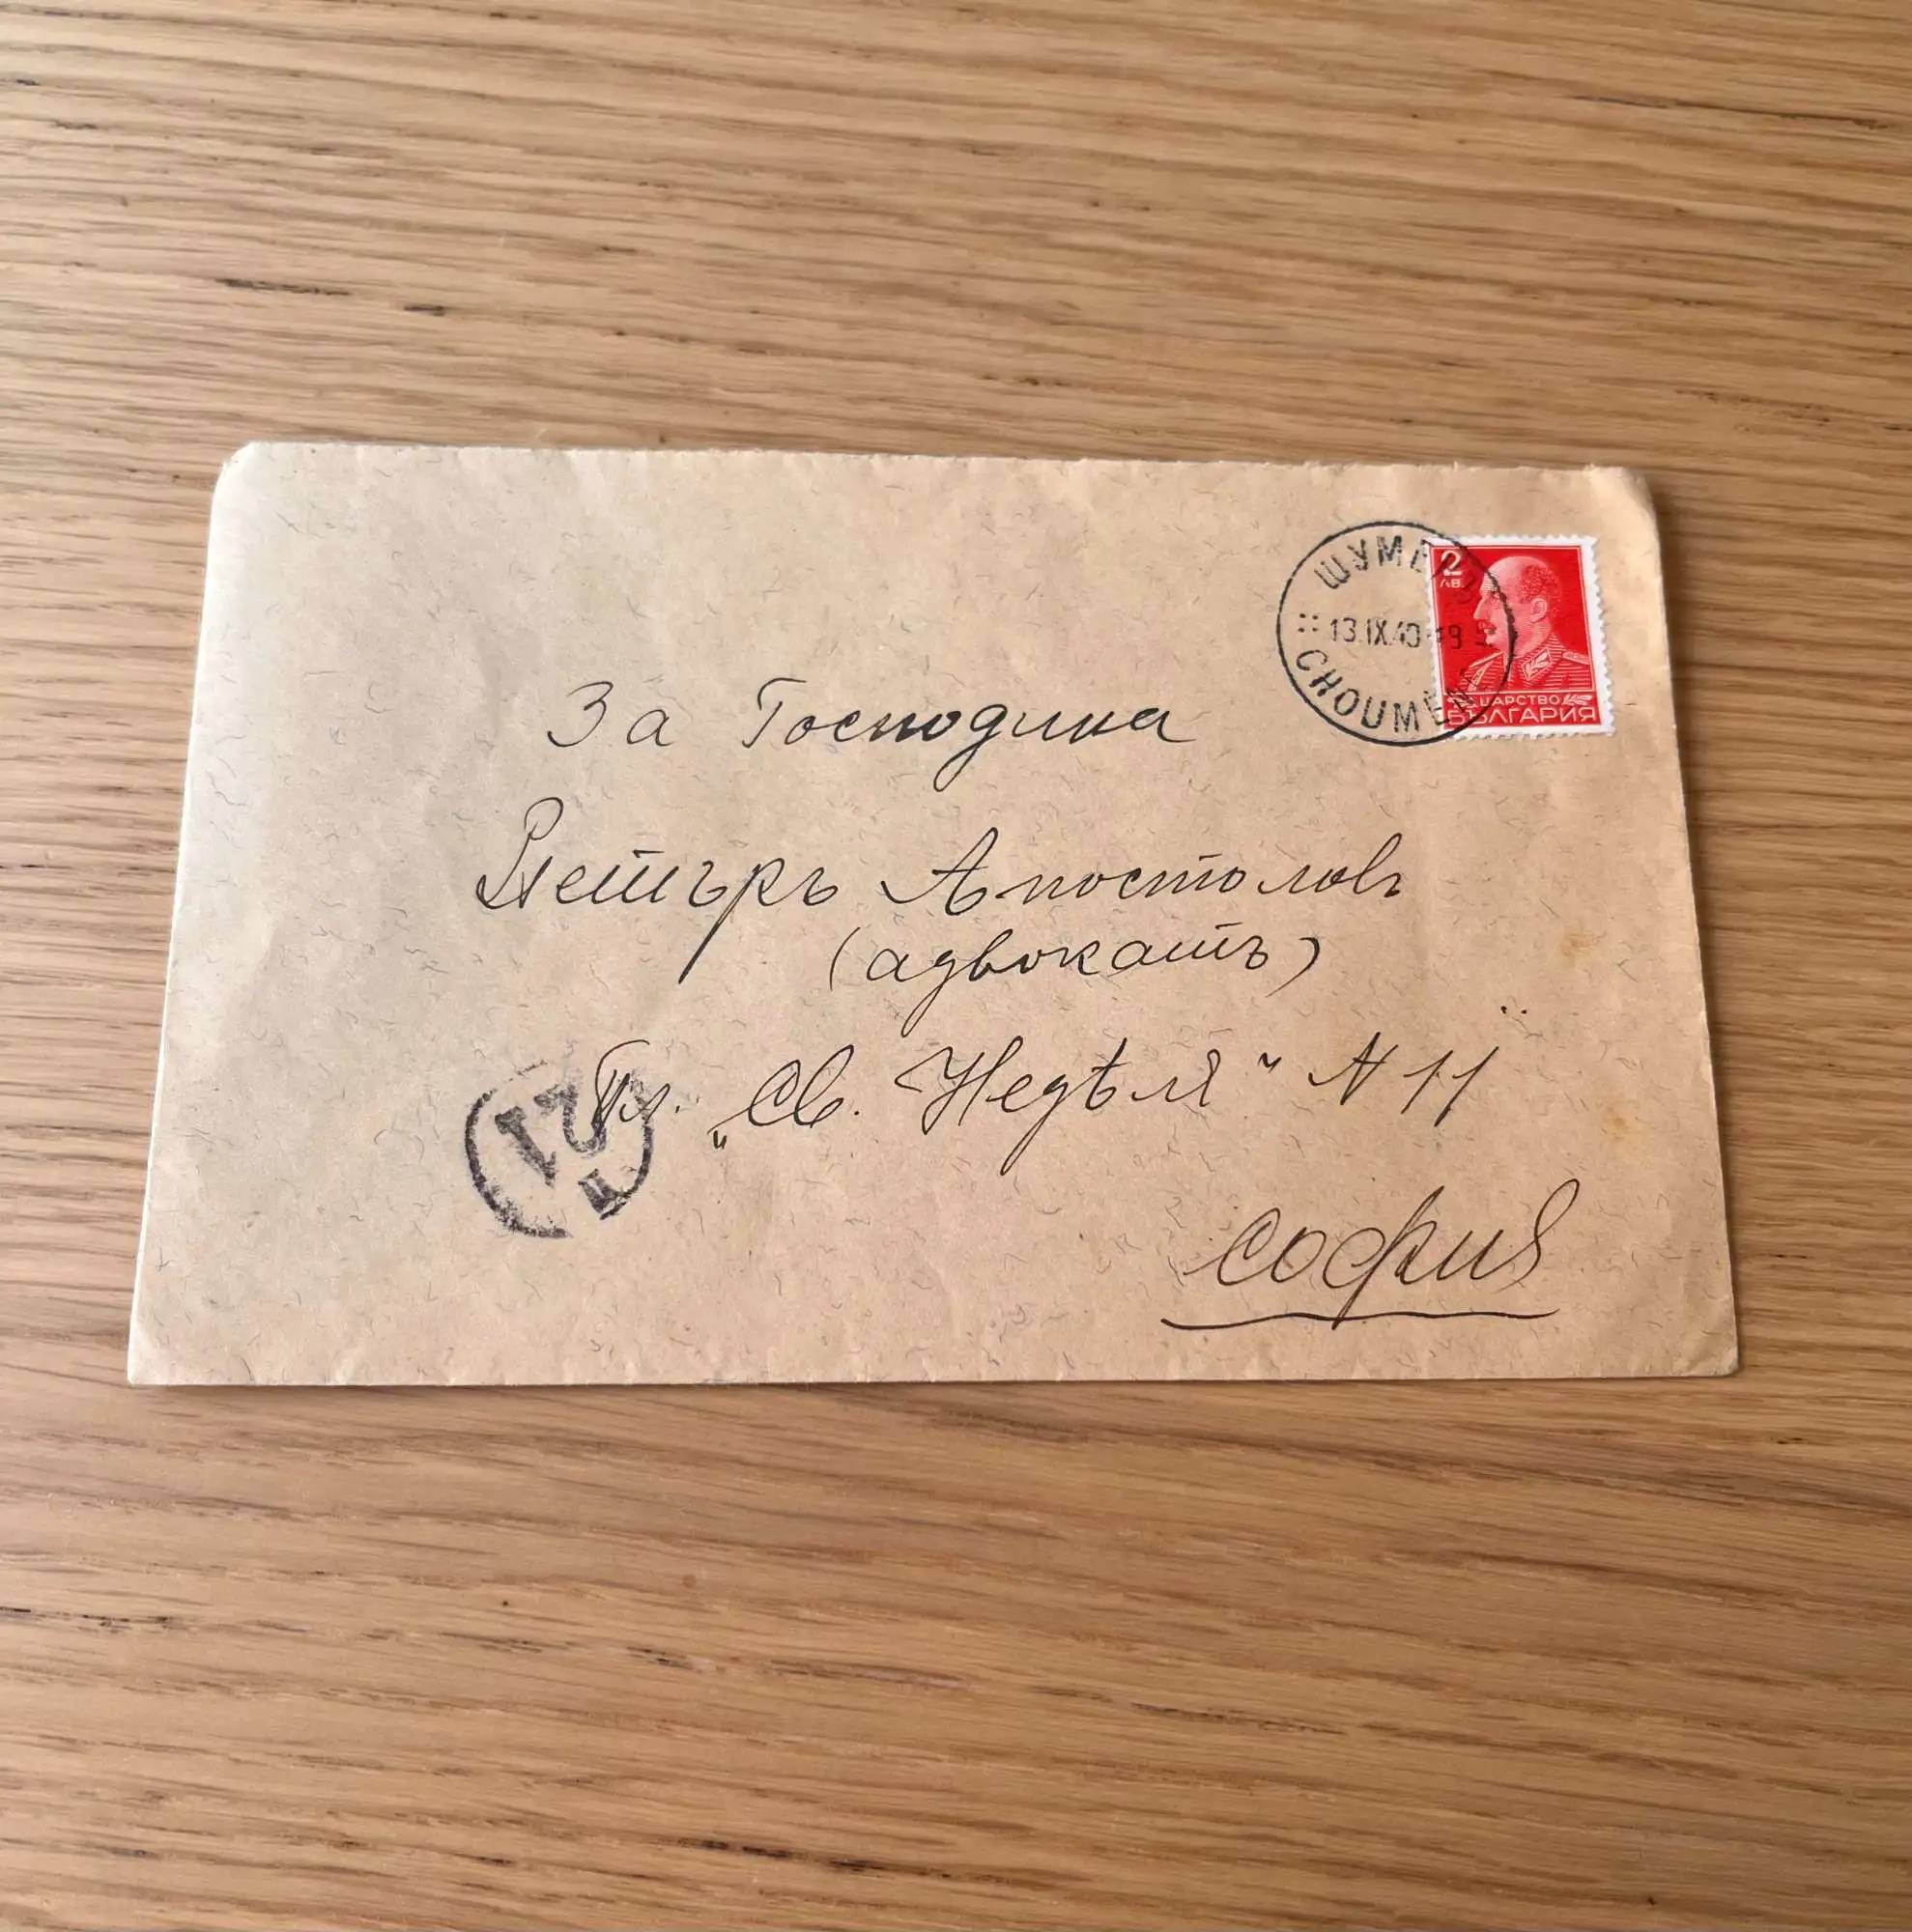 ШУМЕНЪ
13.IX.40
CHOUMEN
2
ЛВ.
ЦАРСТВО
БЪЛГАРИЯ
За Господина
Петъръ Апостоловъ
(адвокатъ)
Пл. „Св. Недѣля" N 11
София
21